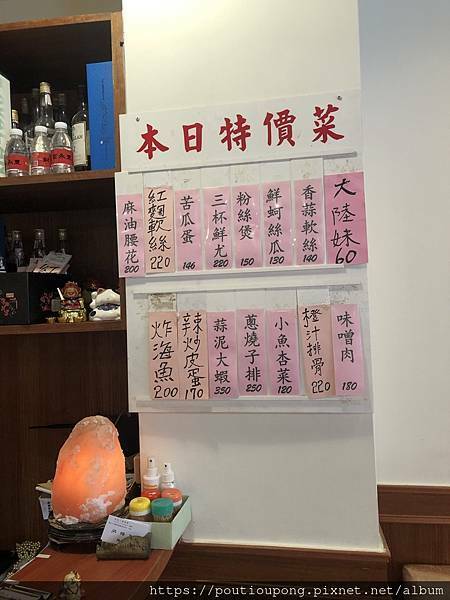 本日特價菜
麻油腰花 200
紅麴軟絲 220
苦瓜蛋 146
三杯鮮尤 220
粉絲煲 150
鮮蚵絲瓜 130
香蒜軟絲 140
大陸妹 60
炸海魚 200
辣炒皮蛋 170
蒜泥大蝦 350
蔥燒子排 250
小魚杏菜 120
橙汁排骨 220
味噌肉 180
https://poutioupong.pixnet.net/album